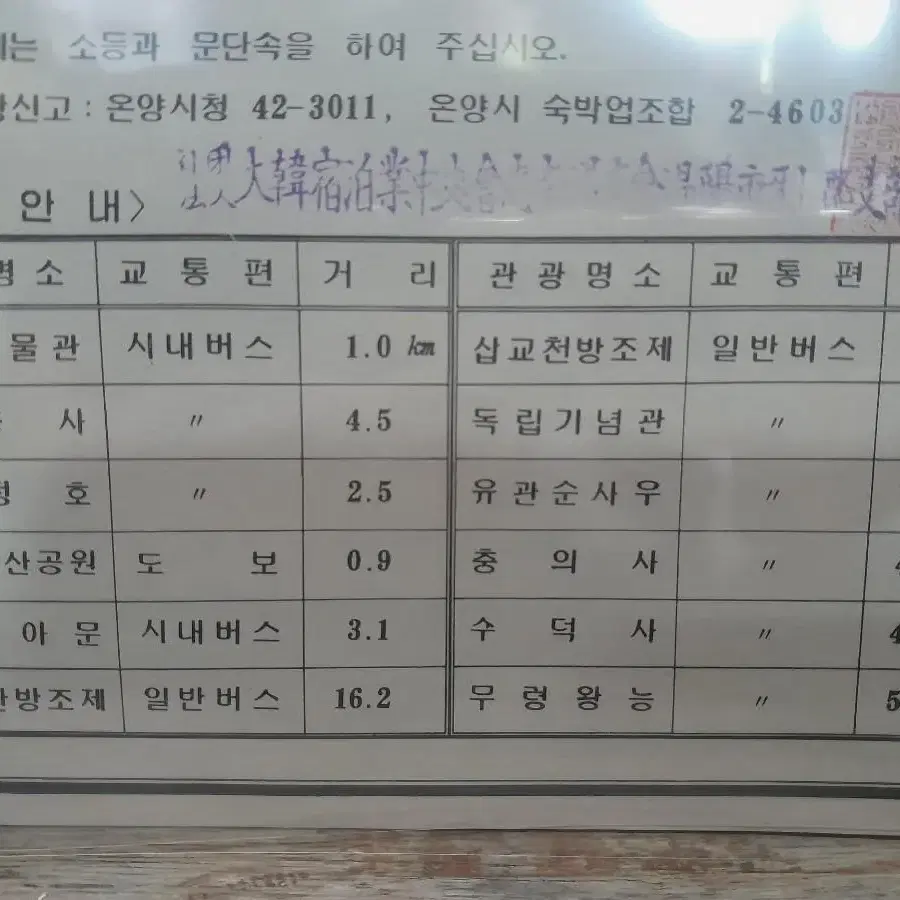 는 소등과 문단속을 하여 주십시오.
신고 : 온양시청 42-3011, 온양시 숙박업조합 2-4603
社人 大韓宿泊業中央會
안 내>
소 교 통 편 거 리 관 광 명 소 교 통 편
물 관 시내버스 1.0 ㎞ 삽교천방조제 일반버스
사 〃 4.5 독립기념관 〃
호 〃 2.5 유관순사우 〃
산공원 도 보 0.9 충 의 사 〃
아 문 시내버스 3.1 수 덕 사 〃 4
방조제 일반버스 16.2 무 령 왕 능 〃 5